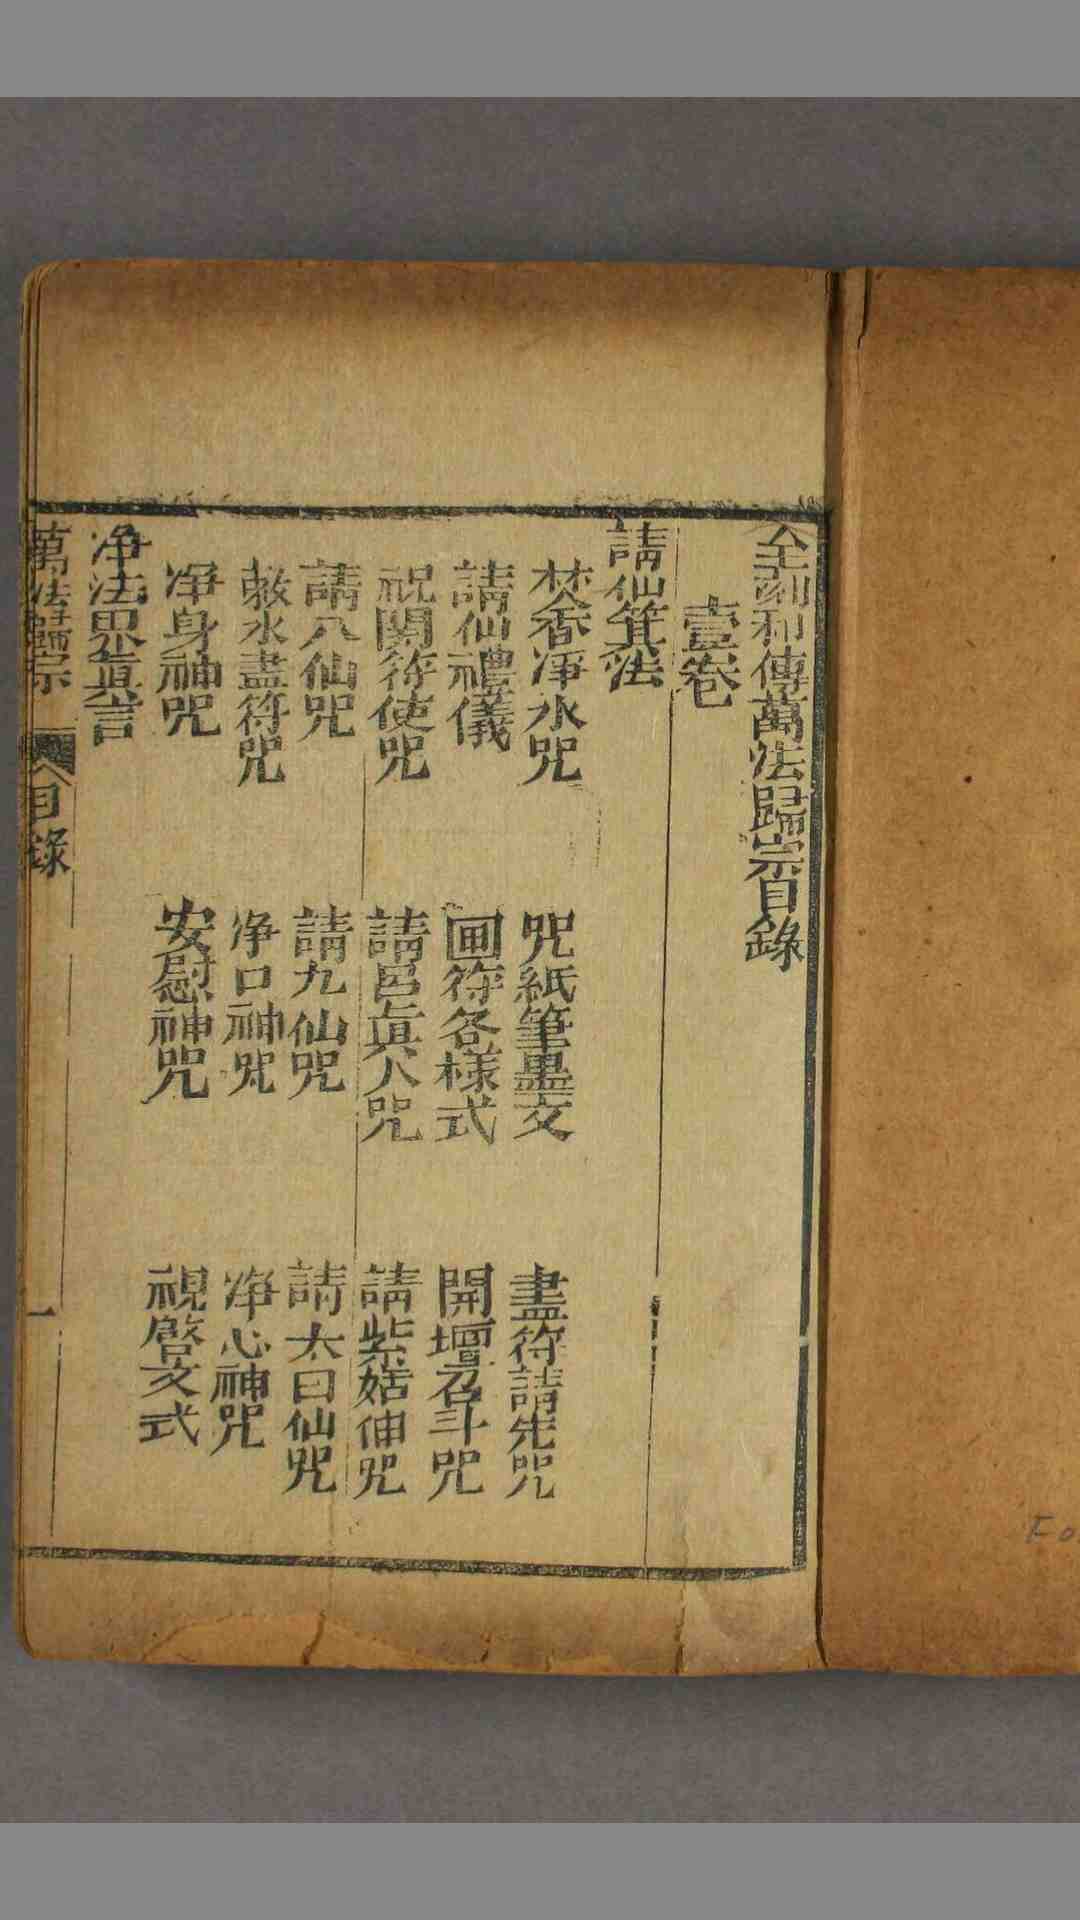 全刻秘傳萬法歸宗目錄
壹卷
請仙箕法
焚香凈水咒 咒紙筆墨文 畫符請先咒
請仙禮儀 画符各樣式 開壇召斗咒
祝關符使咒 請呂眞人咒 請紫姑伸咒
請八仙咒 請九仙咒 請太白仙咒
敕水畫符咒 凈口神咒 凈心神咒
凈身神咒 安慰神咒 視啓文式
凈法界眞言
萬法歸宗 目錄 一
Fo